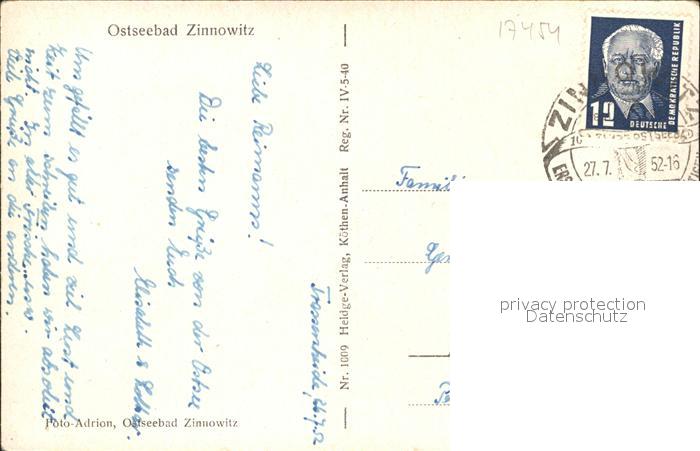 Ostseebad Zinnowitz
17454
DEUTSCHE DEMOKRATISCHE REPUBLIK
12
ZIN
27.7.52-16
Trassenheide, 26.7.52
Liebe Reimanns!
Die besten Grüße von der Ostsee
senden Euch
Elisabeth & Lothar.
Uns gefällt es gut und viel Lust und
Zeit zum Schreiben haben wir absolut
nicht. In alter Frische
viele Grüße an die anderen.
Foto-Adrion, Ostseebad Zinnowitz
Nr. 1009 Heldge-Verlag, Köthen-Anhalt Reg. Nr. IV-5-40
Famil
privacy protection
Datenschutz